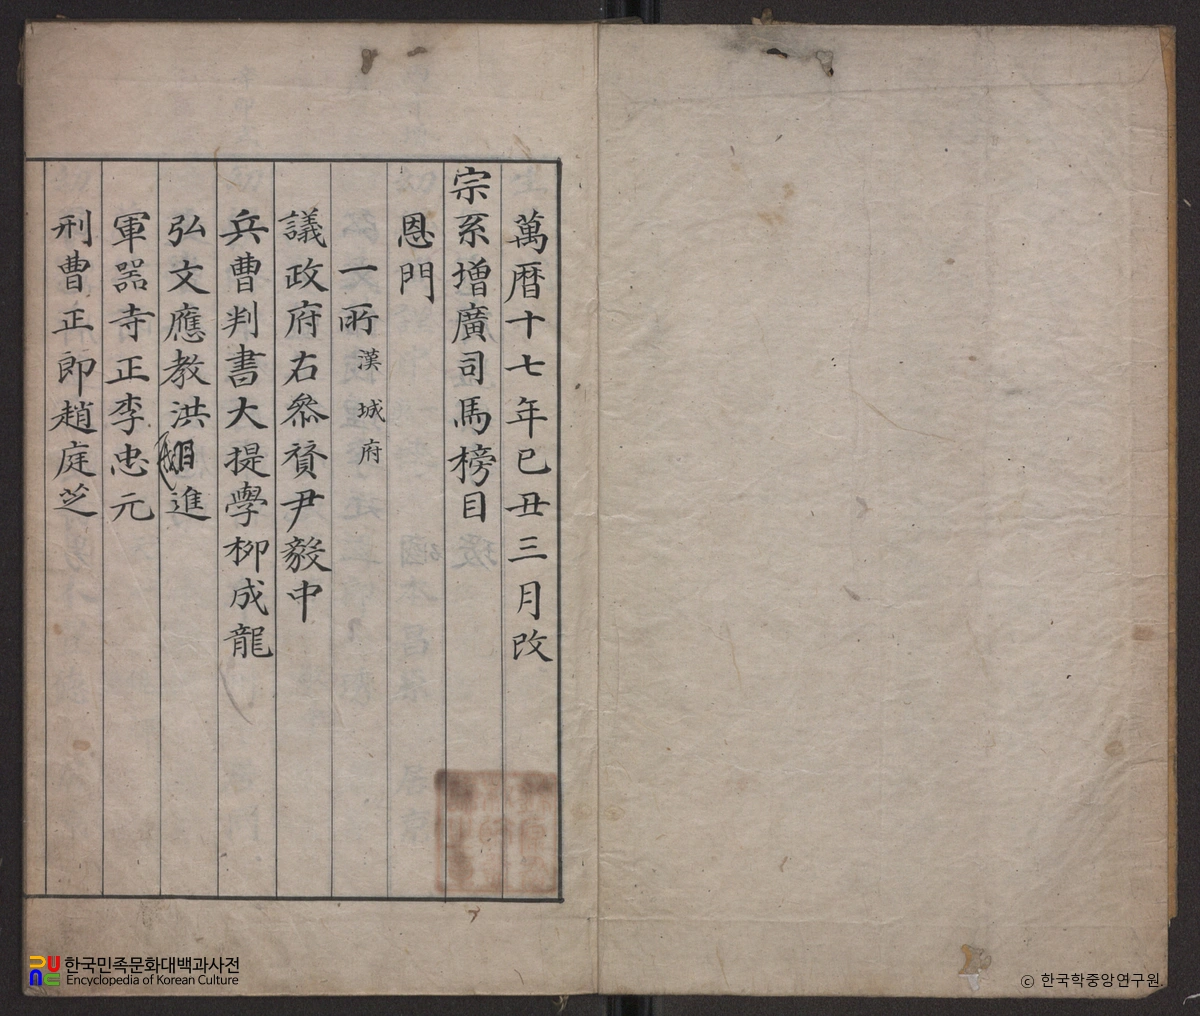 萬曆十七年己丑三月改
宗系增廣司馬榜目
恩門
一所漢城府
議政府右叅贊尹毅中
兵曹判書大提學柳成龍
弘文應教洪進
軍器寺正李忠元
刑曹正郎趙庭芝
한국민족문화대백과사전
Encyclopedia of Korean Culture
© 한국학중앙연구원